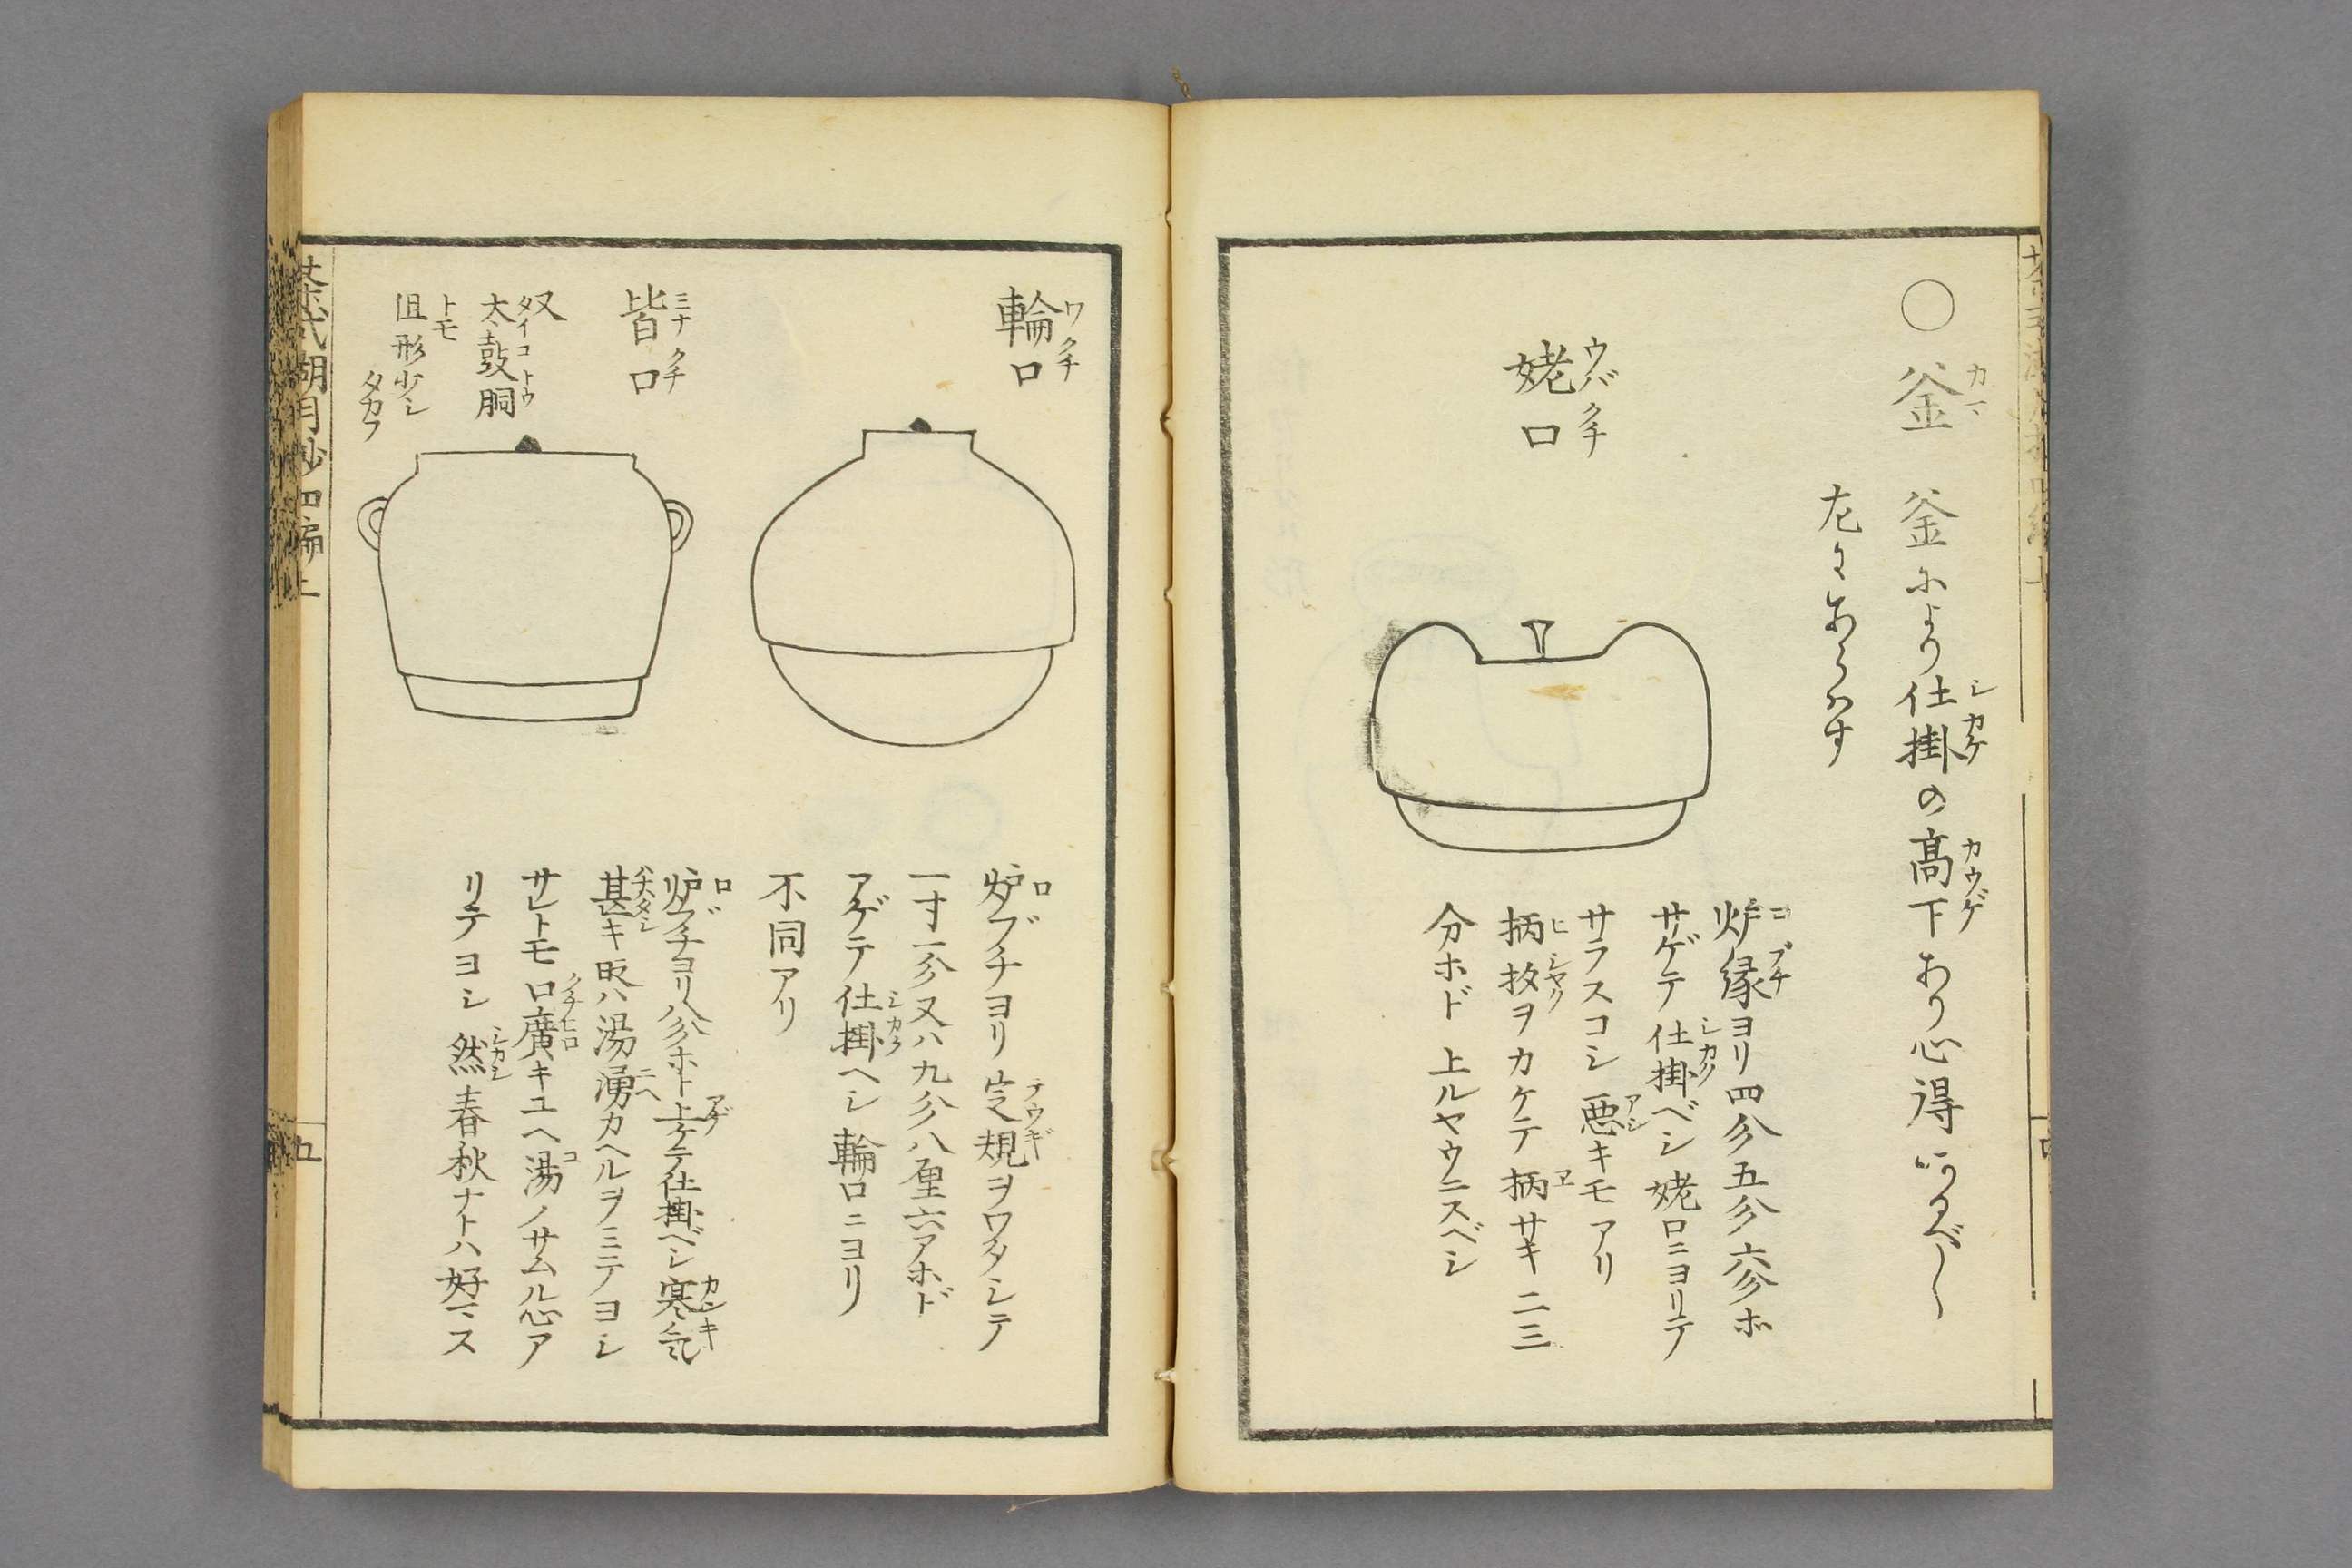 ○釜 釜により仕掛の高下あり心得いるべし
左にあらハす
姥口
炉縁ヨリ四分五分六分ホ
サゲテ仕掛ベシ姥口ニヨリテ
サラスコシ悪キモアリ
柄杓ヲカケテ柄サキ二三
分ホド上ルヤウニスベシ
輪口
炉ブチヨリ定規ヲワタシテ
一寸一分又ハ九分八厘六アホド
アゲテ仕掛ヘシ輪口ニヨリ
不同アリ
皆口
又
太鼓胴
トモ
但形少シ
タカフ
炉ブチヨリ八分ホト上ケテ仕掛ベシ寒気
甚キ時ハ湯湧カヘルヲミテヨシ
サレトモ口廣キユヘ湯ノサムル心ア
リテヨシ然春秋ナトハ好マス
茶式湖月抄四編上
五